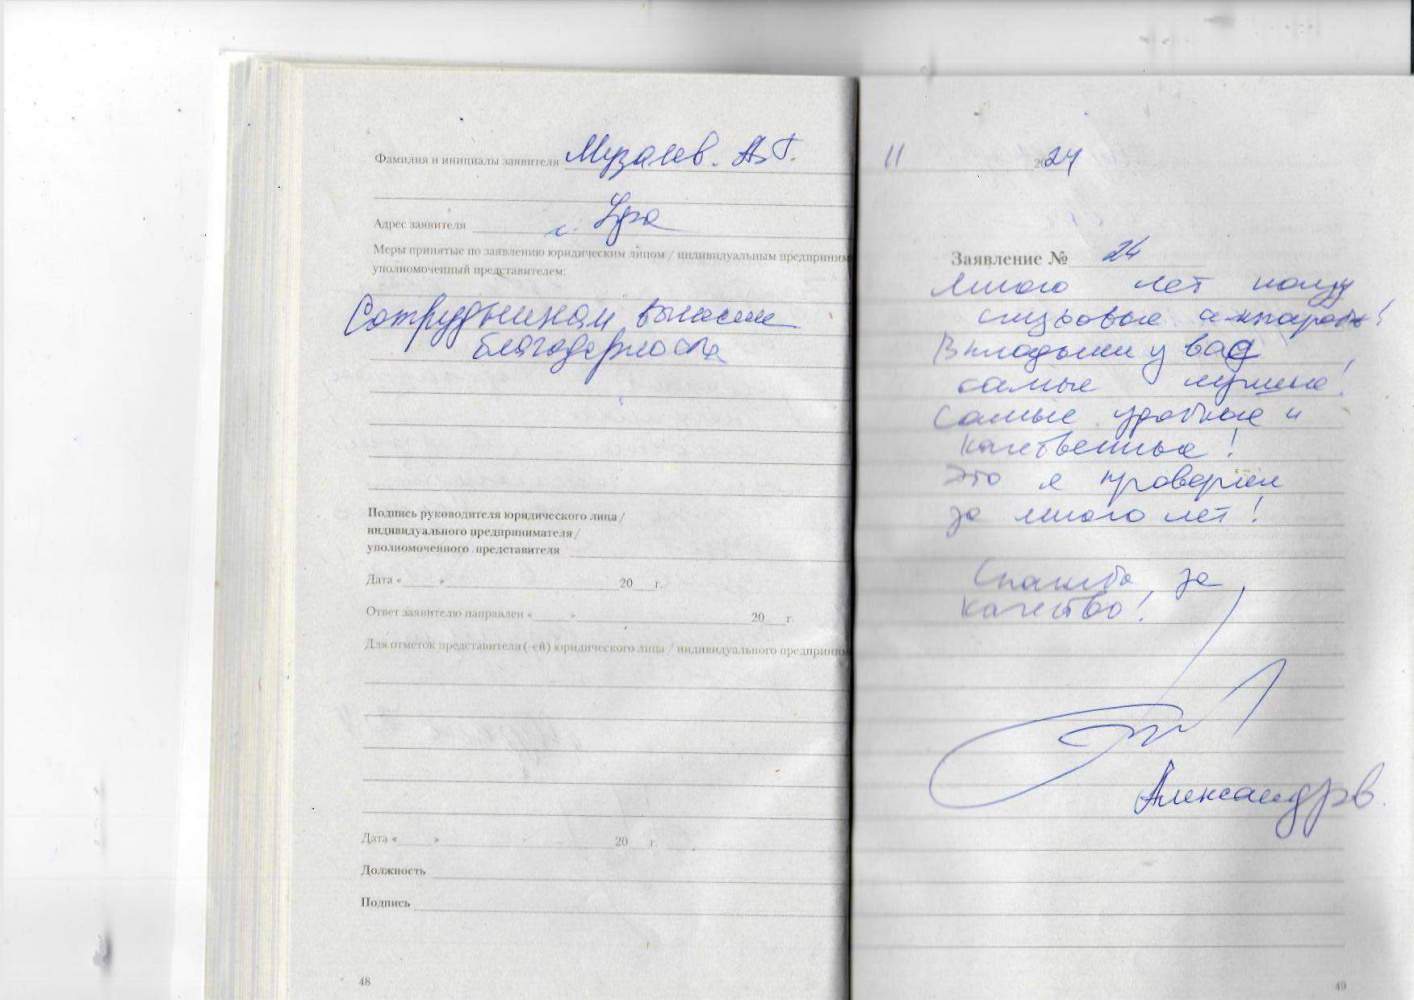 Фамилия и инициалы заявителя Музалев. А.Г.
Адрес заявителя г. Уфа
Меры принятые по заявлению юридическим лицом / индивидуальным предприним
уполномоченный представителем:
Сотрудникам вынесена
благодарность
Подпись руководителя юридического лица /
индивидуального предпринимателя /
уполномоченного представителя
Дата « » 20 г.
Ответ заявителю направлен « » 20 г.
Для отметок представителя (-ей) юридического лица / индивидуального предприни
Дата « » 20 г.
Должность
Подпись
48
11 2024
Заявление № 24
Много лет ношу
слуховые аппараты!
Вкладыши у вас
самые лучшие!
Самые удобные и
качественные!
Это я проверил
за много лет!
Спасибо за
качество!
Александров.
49